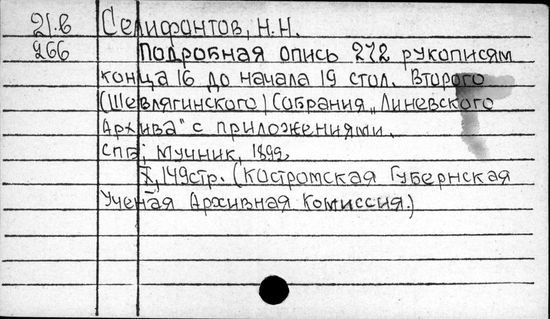 21.в Селифонтов, Н.Н.
266 Подробная опись 272 рукописям
конца 16 до начала 19 стол. Второго
(Шевлягинского) Собрания „Линевского
Архива" с приложениями.
СПБ; Мучник, 1892.
X, 149стр. (Костромская Губернская
Ученая Архивная Комиссия.)